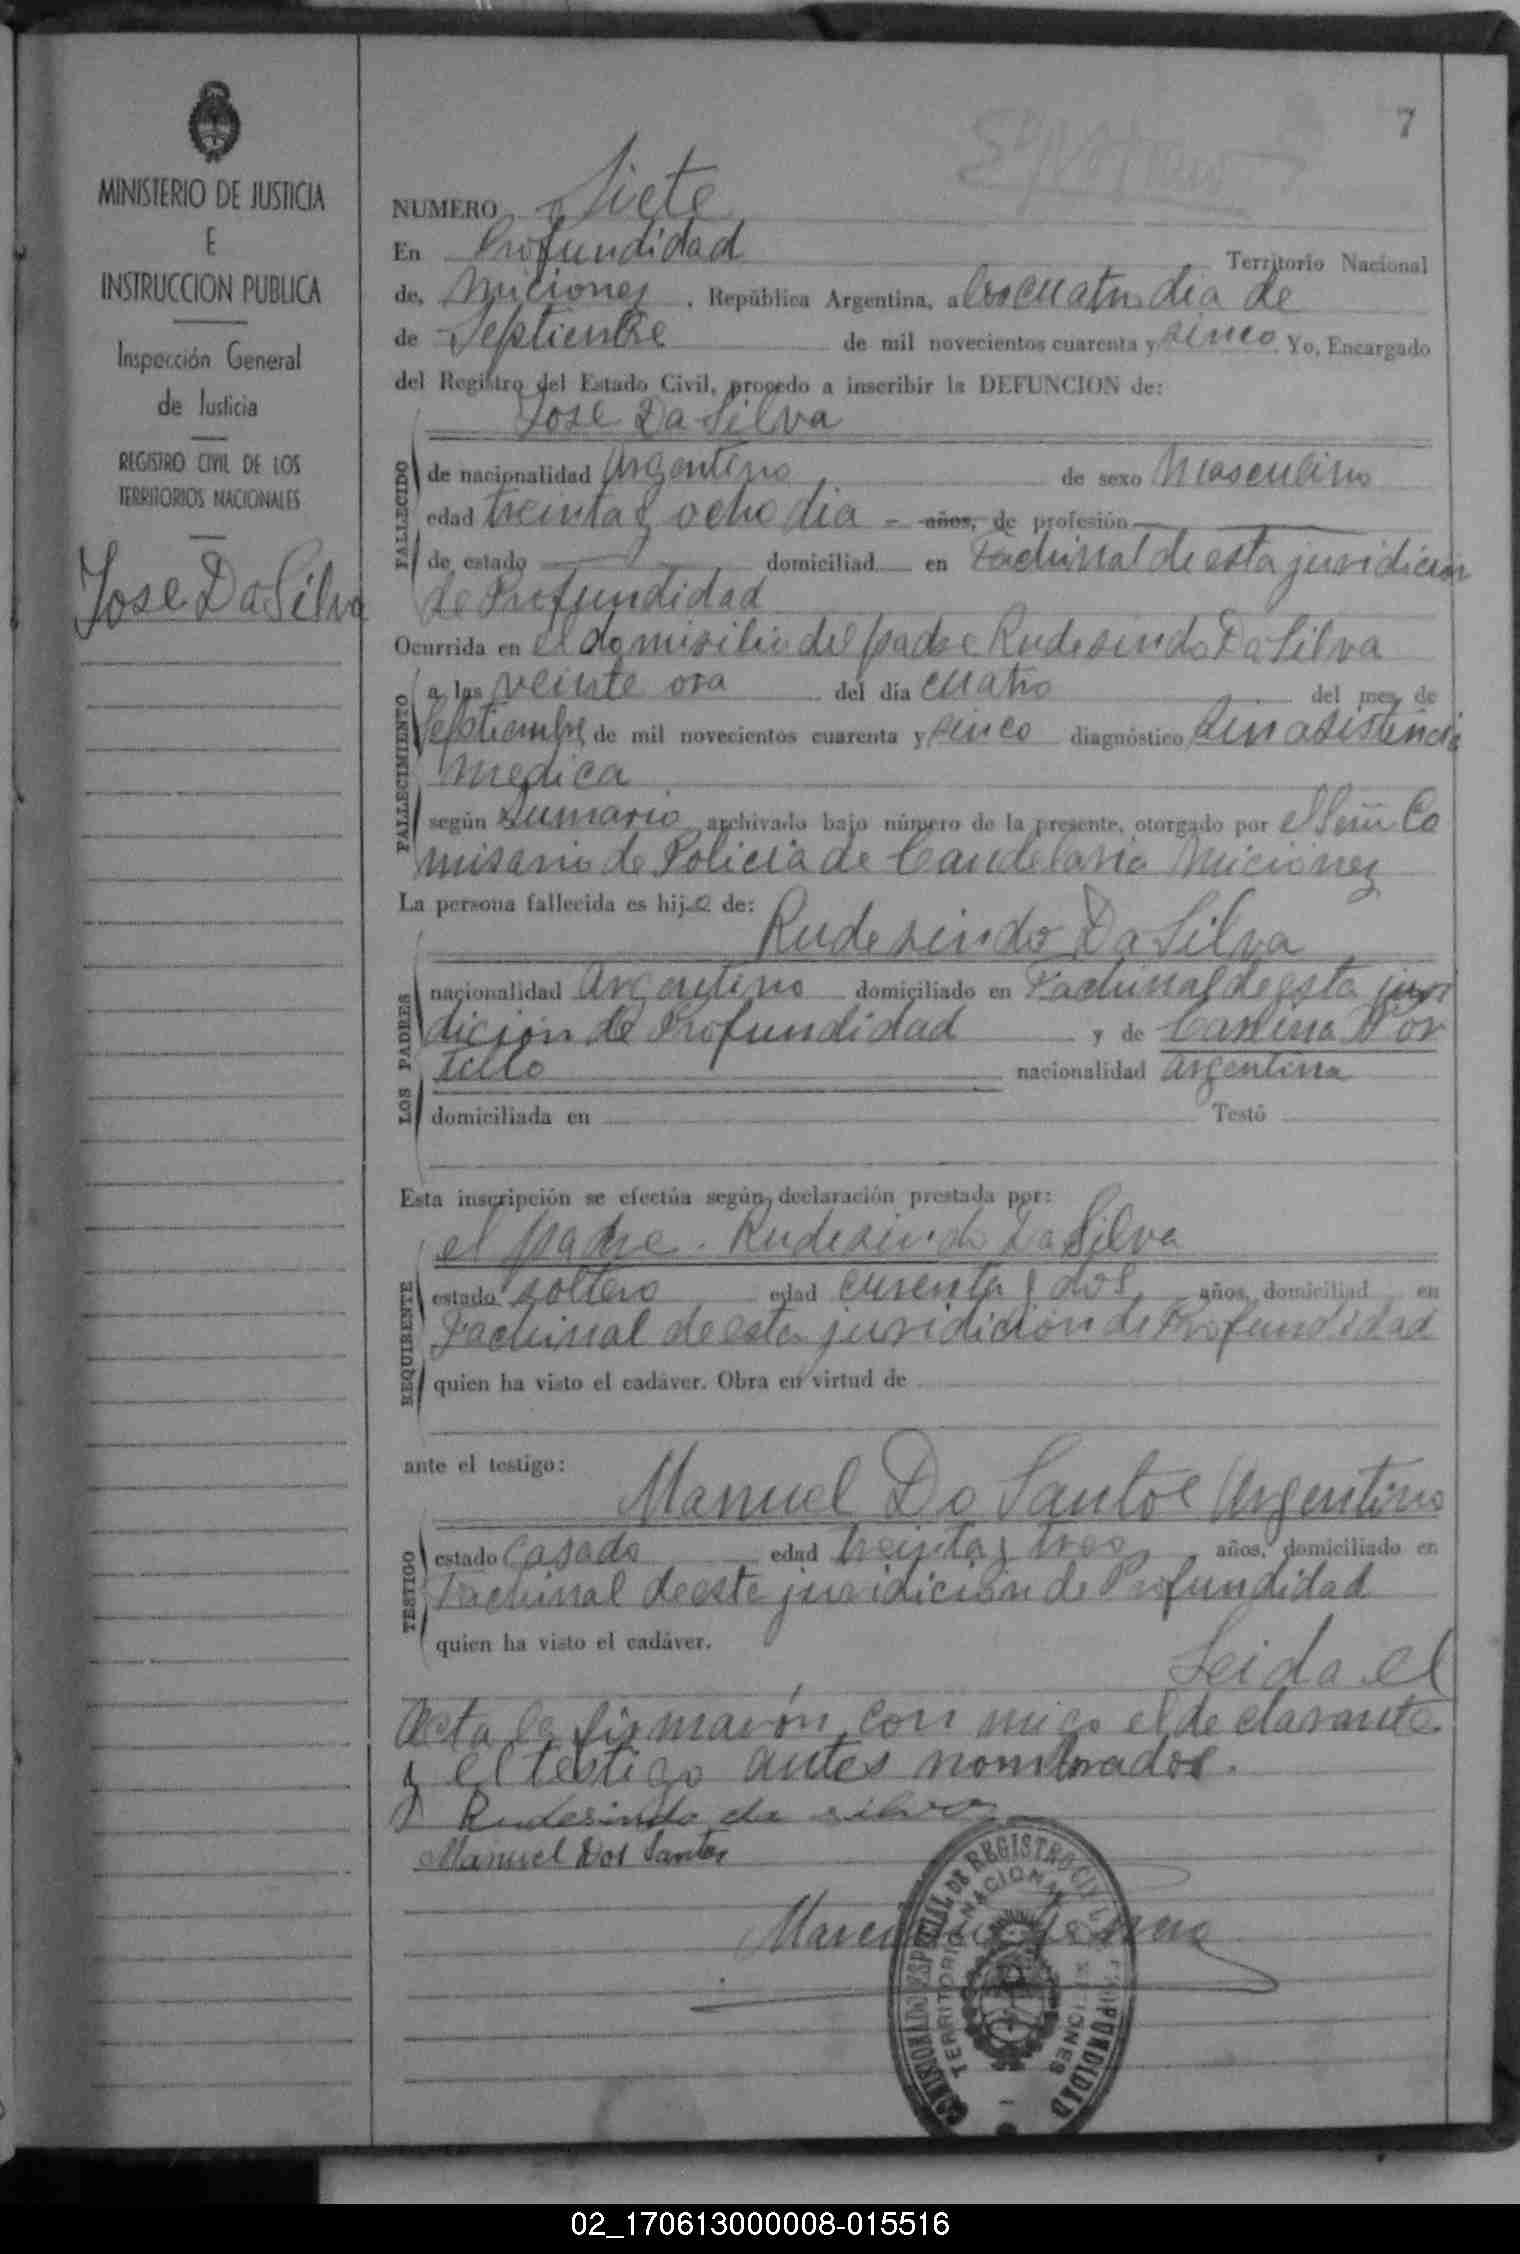 7
MINISTERIO DE JUSTICIA
E
INSTRUCCION PUBLICA
Inspección General
de Justicia
REGISTRO CIVIL DE LOS
TERRITORIOS NACIONALES
Jose Da Silva
NUMERO Siete
En Profundidad Territorio Nacional
de, Miciones, República Argentina, a los cuatro dia de
de Septienbre de mil novecientos cuarenta y sinco Yo, Encargado
del Registro del Estado Civil, procedo a inscribir la DEFUNCION de:
Jose Da Silva
FALLECIDO
de nacionalidad Argentino de sexo Masculino
edad treinta y ocho dia - años, de profesión
de estado domiciliad en Fachinal de esta juridicion
de Profundidad
Ocurrida en el domisilio del padre Rudesindo Da Silva
FALLECIMIENTO
a las veinte ora del día cuatro del mes de
Septiembre de mil novecientos cuarenta y sinco diagnóstico Sin asistencia
medica
según Sumario archivado bajo número de la presente, otorgado por el Señ Co
misario de Policia de Candelaria Miciones
La persona fallecida es hijo de:
Rudesindo Da Silva
LOS PADRES
nacionalidad Argentino domiciliado en Fachinal de esta juri
dición de Profundidad y de
nacionalidad argentina
domiciliada en Testó
Esta inscripción se efectúa según declaración prestada por:
el padre. Rudesindo Da Silva
REQUIRENTE
estado soltero edad curenta y dos años, domiciliad en
Fachinal de esta juridición de Profundidad
quien ha visto el cadáver. Obra en virtud de
ante el testigo:
Manuel Do Santos Argentino
TESTIGO
estado Casado edad treinta y tres años, domiciliado en
Fachinal de este juridición de Profundidad
quien ha visto el cadáver.
Leida el
Acta la firmarón con migo el declarante
y el testigo antes nombrados.
Rudesindo da silva
Manuel Dos Santos
COMISIONADO ESPECIAL DE REGISTRO CIVIL PROFUNDIDAD
TERRITORIO NACIONAL MISIONES
02_170613000008-015516